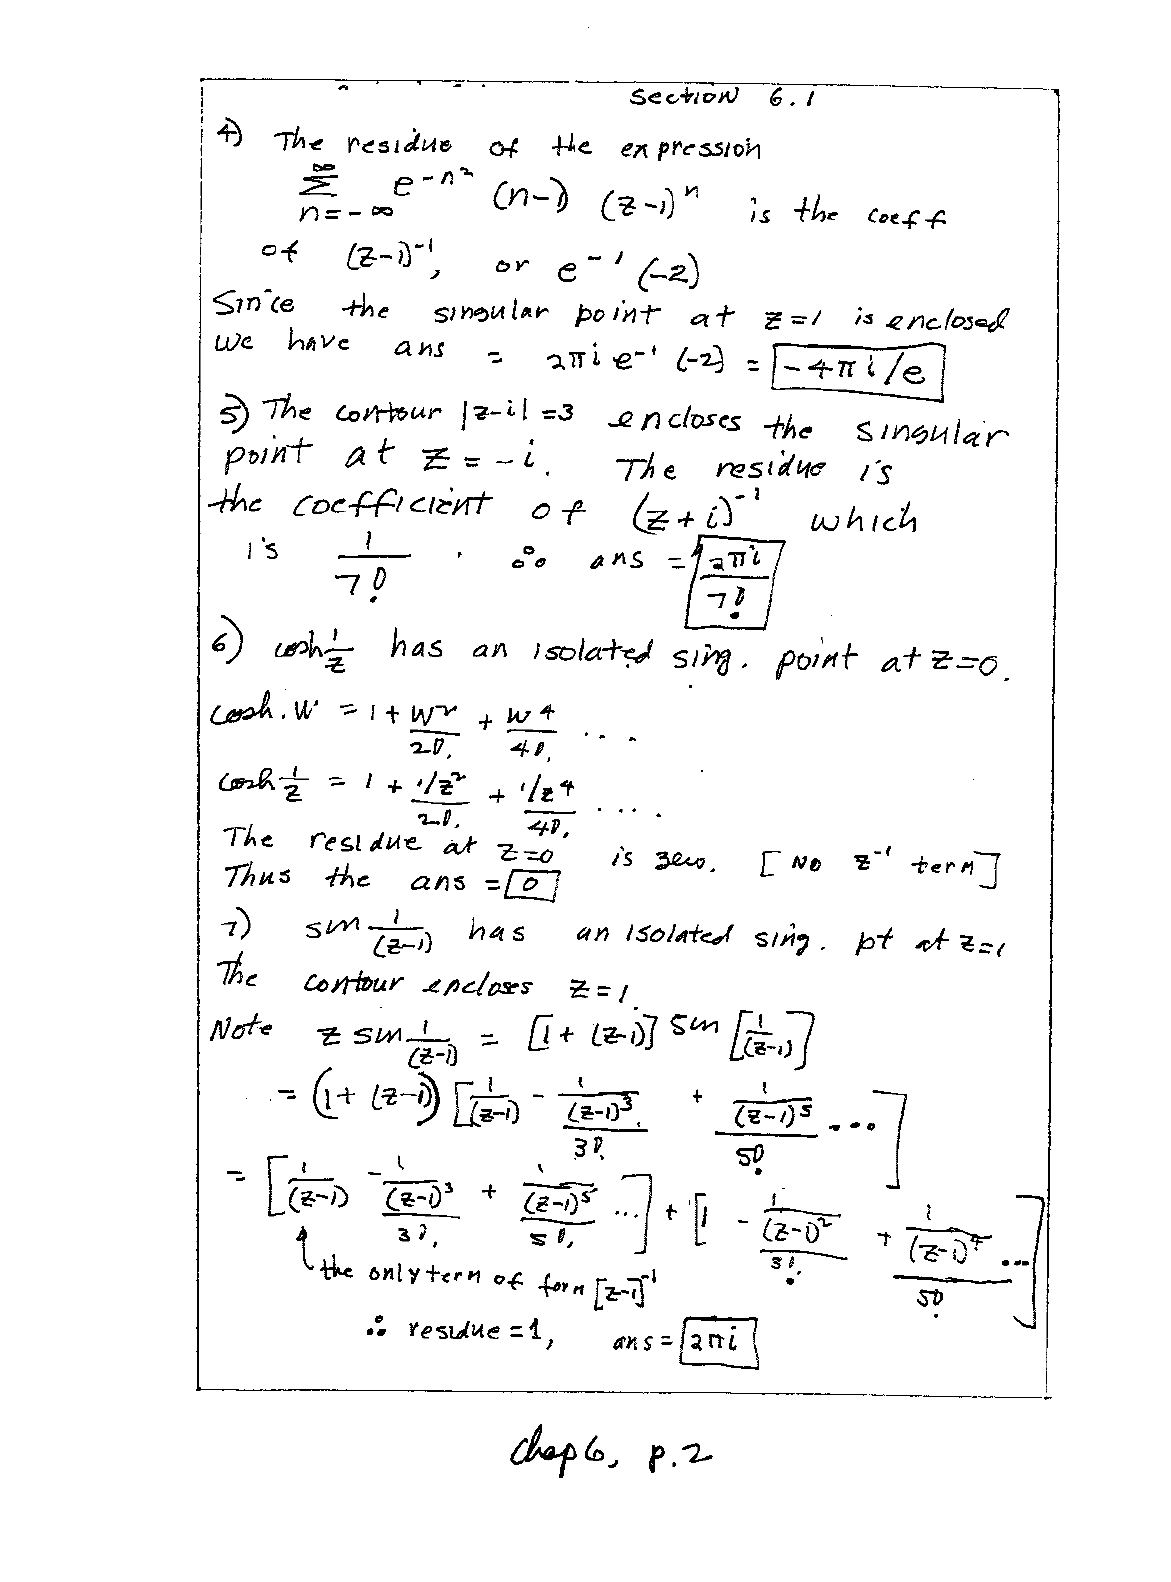 Section 6.1
4) The residue of the expression
∞ Σ n=-∞ e^{-n²} (n-1) (z-1)^n is the coeff
of (z-1)^{-1}, or e^{-1} (-2)
Since the singular point at z=1 is enclosed
we have ans = 2πi e^{-1} (-2) = -4πi/e
5) The contour |z-i|=3 encloses the singular
point at z=-i. The residue is
the coefficient of (z+i)^{-1} which
is 1/7! . ∴ ans = 2πi/7!
6) cosh 1/z has an isolated sing. point at z=0.
cosh. w = 1 + w²/2! + w⁴/4! ....
cosh 1/z = 1 + (1/z²)/2! + (1/z⁴)/4! ....
The residue at z=0 is zero. [No z^{-1} term]
Thus the ans = 0
7) sin 1/(z-1) has an isolated sing. pt at z=1
The contour encloses z=1.
Note z sin 1/(z-1) = [1+(z-1)] sin [1/(z-1)]
= (1+(z-1)) [1/(z-1) - (1/(z-1)³)/3! + (1/(z-1)⁵)/5! ...]
= [1/(z-1) - (1/(z-1)³)/3! + (1/(z-1)⁵)/5! ...] + [1 - (1/(z-1)²)/3! + (1/(z-1)⁴)/5! ...]
the only term of form [z-1]^{-1}
∴ residue = 1, ans = 2πi
Chap 6, p.2